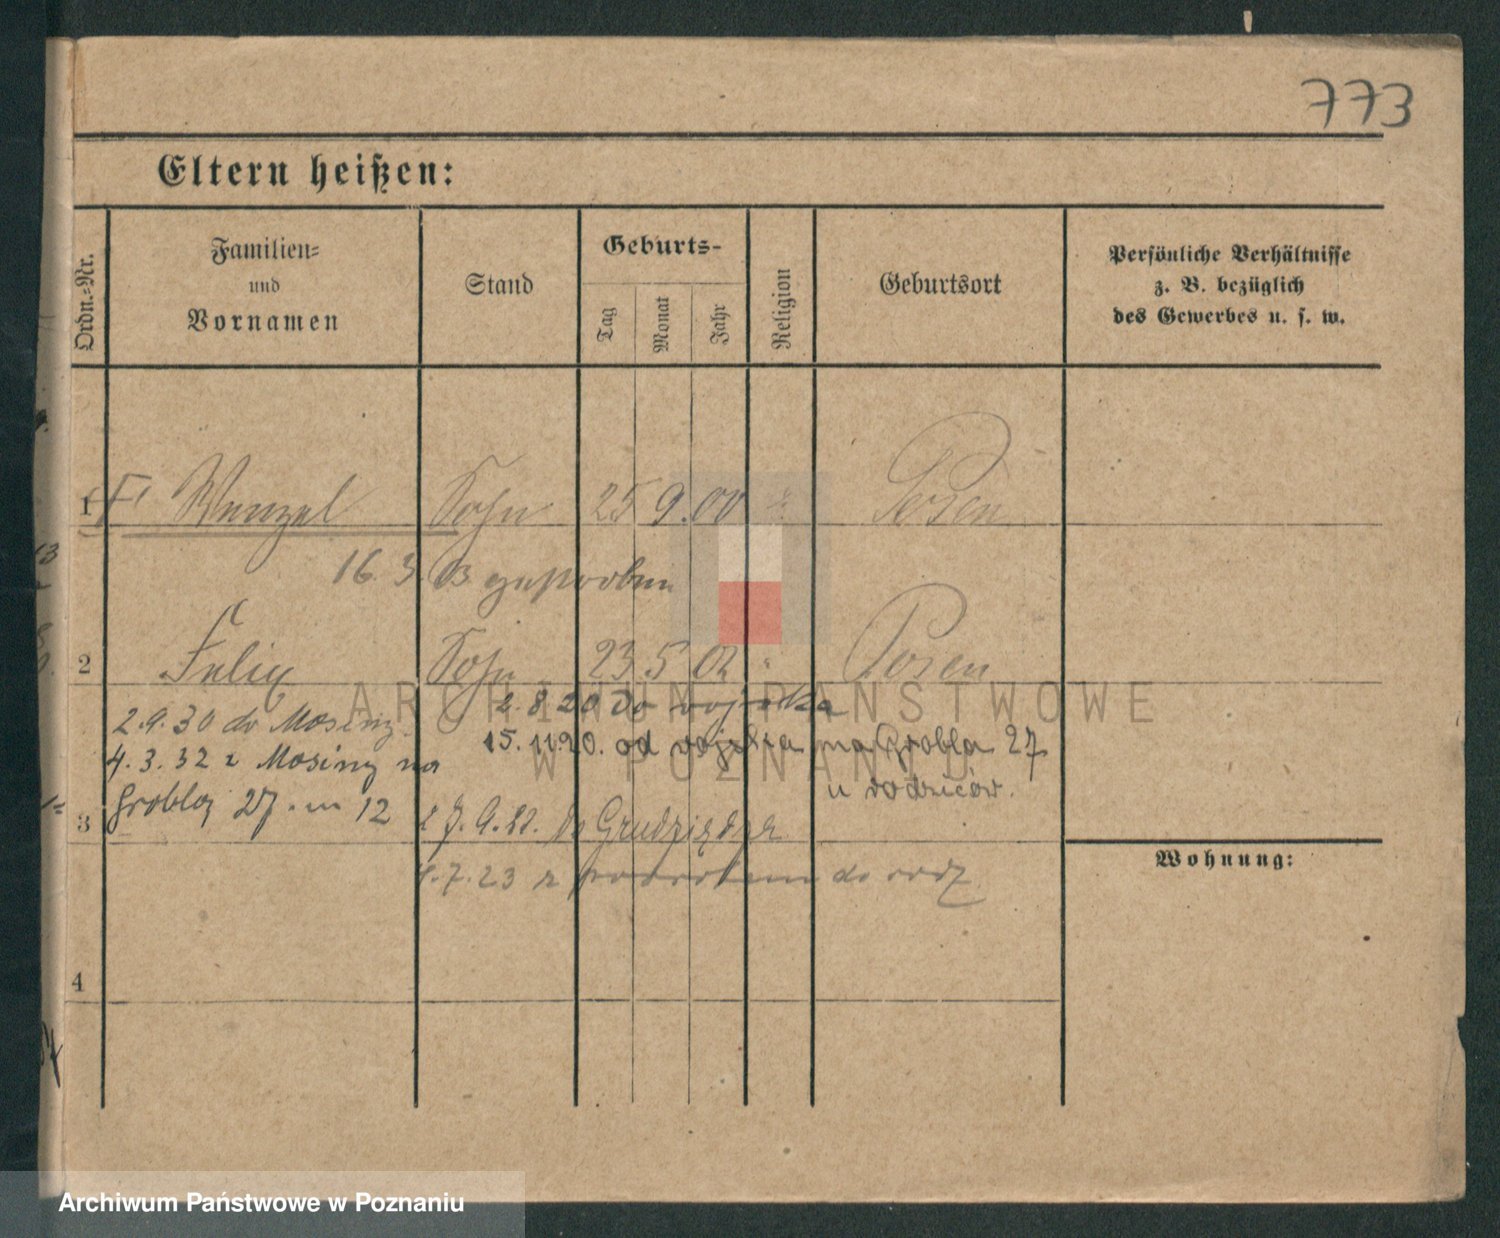 773
Eltern heißen:
Ordn.-Nr.
Familien-
und
Vornamen
Stand
Geburts-
Tag
Monat
Jahr
Religion
Geburtsort
Persönliche Verhältnisse
z. B. bezüglich
des Gewerbes u. s. w.
1 Wenzel Sohn 25 9. 00 Posen
16. 3.
2 Felix Sohn 23 5 02 Posen
2. 8. 20 do wojska
2.9.30 do Mosiny
15. 11. 20. od wojska na Grobla 27
4. 3. 32 z Mosiny na
u rodziców.
Grobla 27. m 12
3
7. 9. 21. do Grudziądza
7. 23 z powrotem do rodz
Wohnung:
4
ARCHIWUM PAŃSTWOWE
W POZNANIU
Archiwum Państwowe w Poznaniu